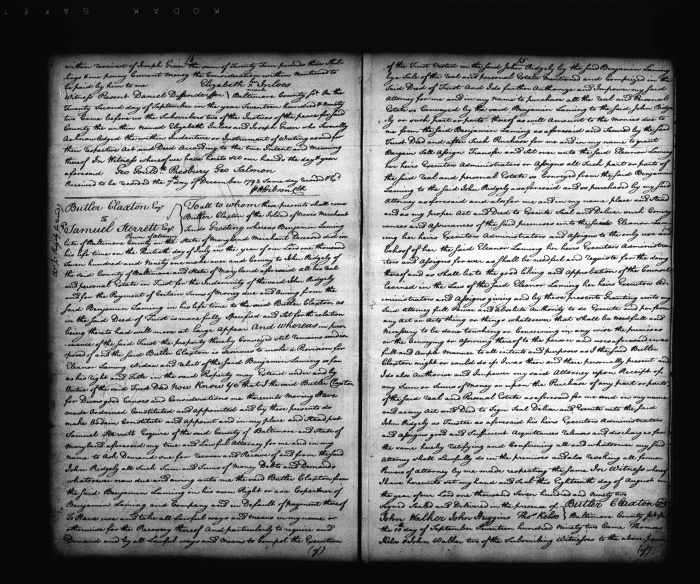 within received of Joseph Green the sum of Twenty Two pounds three Shil-
lings & one penny Current money the Consideration within mentioned to
be paid by him to me
Elizabeth Inloes
Twenty Second day of September in the year Seventeen hundred & Ninety
two Came before us the Subscribers two of the Justices of the peace for said
County the within named Elizabeth Inloes and Joseph Green who Severally
Acknowledged the within Instrument of writing as and for
their respective Act and Deed According to the true Intent and meaning
thereof In Witness whereof we have hereto set our hands the day & year
aforesaid Geo Salmon
Received to be recorded the 7 day of December 1792 Same day
Wm Gibson Clk
Butler Claxton Esq
to
Samuel Sterrett Esq
To all to whom these presents shall come
Butler Claxton of the Island of
Sends Greeting whereas Benjamin Laming
late of Baltimore County in the State of Maryland Merchant Deceased did in
his life time on the Thirtieth day of July in the year of our Lord one thousand
Seven hundred and Ninety one and convey to John Ridgely of
the said County of Baltimore and State of Maryland aforesaid all his real
and personal Estate in Trust for the Indemnity of the said John Ridgely
and for the Payment of Certain Sums of Money due and owing from the
said Benjamin Laming in his life time to the said Butler Claxton as
in the said Deed of Trust is more fully Specified and Set forth relation
being thereto had will more at large Appear And whereas in pur-
suance of the said Trust the property thereby Conveyed Still remains undis-
posed of and the said Butler Claxton is desirous to make a
Eleanor Laming Widow and
as his right and Title in the same Property may Extend under and by
Virtue of the said Trust Deed Now Know Ye that I the said Butler Claxton
for Divers good Causes and Considerations me thereunto moving Have
made Ordained Constituted and appointed and by these presents do
make Ordain Constitute and Appoint and in my place and Stead put
Samuel Sterrett Esquire of the said County of Baltimore and State of
Maryland aforesaid my true and Lawful Attorney for me and in my
name to Ask Demand Sue for recover and Receive of and from the said
John Ridgely all such Sum and Sums of Money Debts and Demands
whatsoever now due and owing unto me the said Butler Claxton from
the said Benjamin Laming in his own Right or as a Copartner of
Benjamin Laming and Company and in Default of Payment thereof
To Have use and take all Lawful ways and Means in my name or
otherwise for the Recovery thereof And particularly to require and
Demand and by all Lawful ways and Means to Compel the Execution
of the Trust Vested in the said John Ridgely by the said Benjamin Laming
by a Sale of the real and personal Estate mentioned and Comprized in the
said Deed of Trust And I do further Authorize and Impower my said
Attorney for me and in my name to purchase all the real and Personal
Estate so Conveyed by the said Benjamin Laming to the said John Ridge-
ly or such part or parts thereof as will Amount to the monies due to
me from the said Benjamin Laming as aforesaid and Secured by the said
Trust Deed and after Such Purchase for me and to grant
Bargain Sell Assign Transfer and Set over unto the said Eleanor Laming
her heirs Executors Administrators or Assigns all Such part or parts of
the real and personal Estate so Conveyed from the said Benjamin
Laming to the said John Ridgely as aforesaid and so purchased by my said
Attorney as aforesaid and also for me and in my name place and Stead
and as my proper Act and Deed to Execute Seal and Deliver such Convey-
ances and Assurances of the said premises unto the said Eleanor Lam-
ing her heirs Executors Administrators and Assigns to the only use and
behoof of her the said Eleanor Laming her heirs Executors Administra-
tors and Assigns forever as shall be needful and requisite for the doing
thereof and as shall be to the good liking and Approbation of the Counsel
Learned in the Law of the said Eleanor Laming her heirs Executors Ad-
ministrators and Assigns giving and by these presents Granting unto my
said Attorney full Power and absolute Authority to do Execute and perform
any Act or Acts thing or things whatsoever that shall be needful and
Necessary to be done touching or Concerning in any wise the premises
or the Conveying or Assuring thereof to the person and uses aforesaid in as
full and Ample Manner to all intents and purposes as I the said Butler
Claxton might or could do if I was then and there personally present and
I do also Authorize and Impower my said Attorney upon Receipt of
any Sum or Sums of Money or upon the Purchase of any part or parts
of the said real and Personal Estate as aforesaid for me and in my name
and as my Act and Deed to Sign Seal Deliver and Execute unto the said
John Ridgely as Trustee as aforesaid his heirs Executors Administrators
and Assigns good and Sufficient Acquittances Releases and discharges for
the same hereby ratifying and Confirming all and whatsoever my said
Attorney shall Lawfully do in the premises and also revoking all former
Powers of Attorney by me made respecting the same In Witness whereof
I have hereunto set my hand and Seal this Eighteenth day of August in
the year of our Lord one thousand Seven hundred and Ninety two
Signed Sealed and Delivered in the presence of Butler Claxton
John Walker John Baltimore County
the day of September Seventeen hundred and Ninety two Came Thomas
& John Walker two of the Subscribing Witnesses to the above